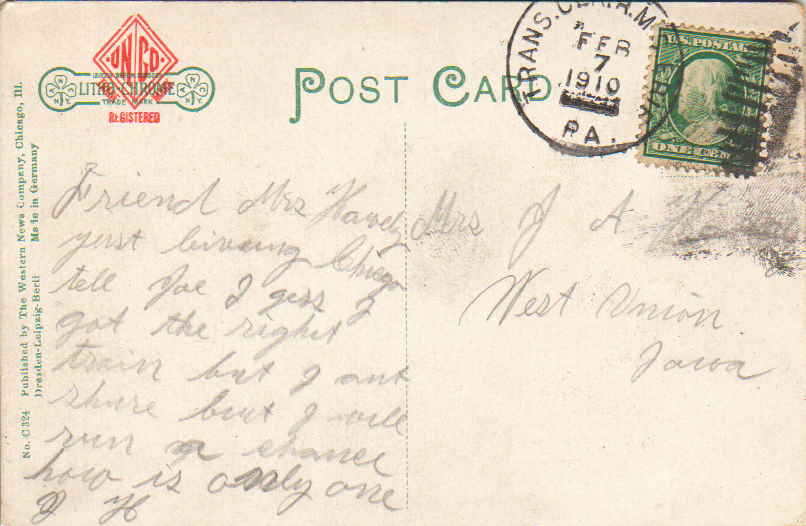 UN CO.
LITHO-CHROME
TRADE MARK
REGISTERED
N Y C O
N Y C O
POST CARD
TRANS. CLK. R.M.
FEB
7
1910
PA.
U.S. POSTAGE
ONE CENT
No. C 324 Published by The Western News Company, Chicago, Ill.
Dresden-Leipzig-Berli Made in Germany
Friend Mrs
just liveing Chicgo
tell Joe I gess I
got the right
train but I ant
shure but I will
run a chance
how is only one
J H
Mrs J A
West Union
Iowa